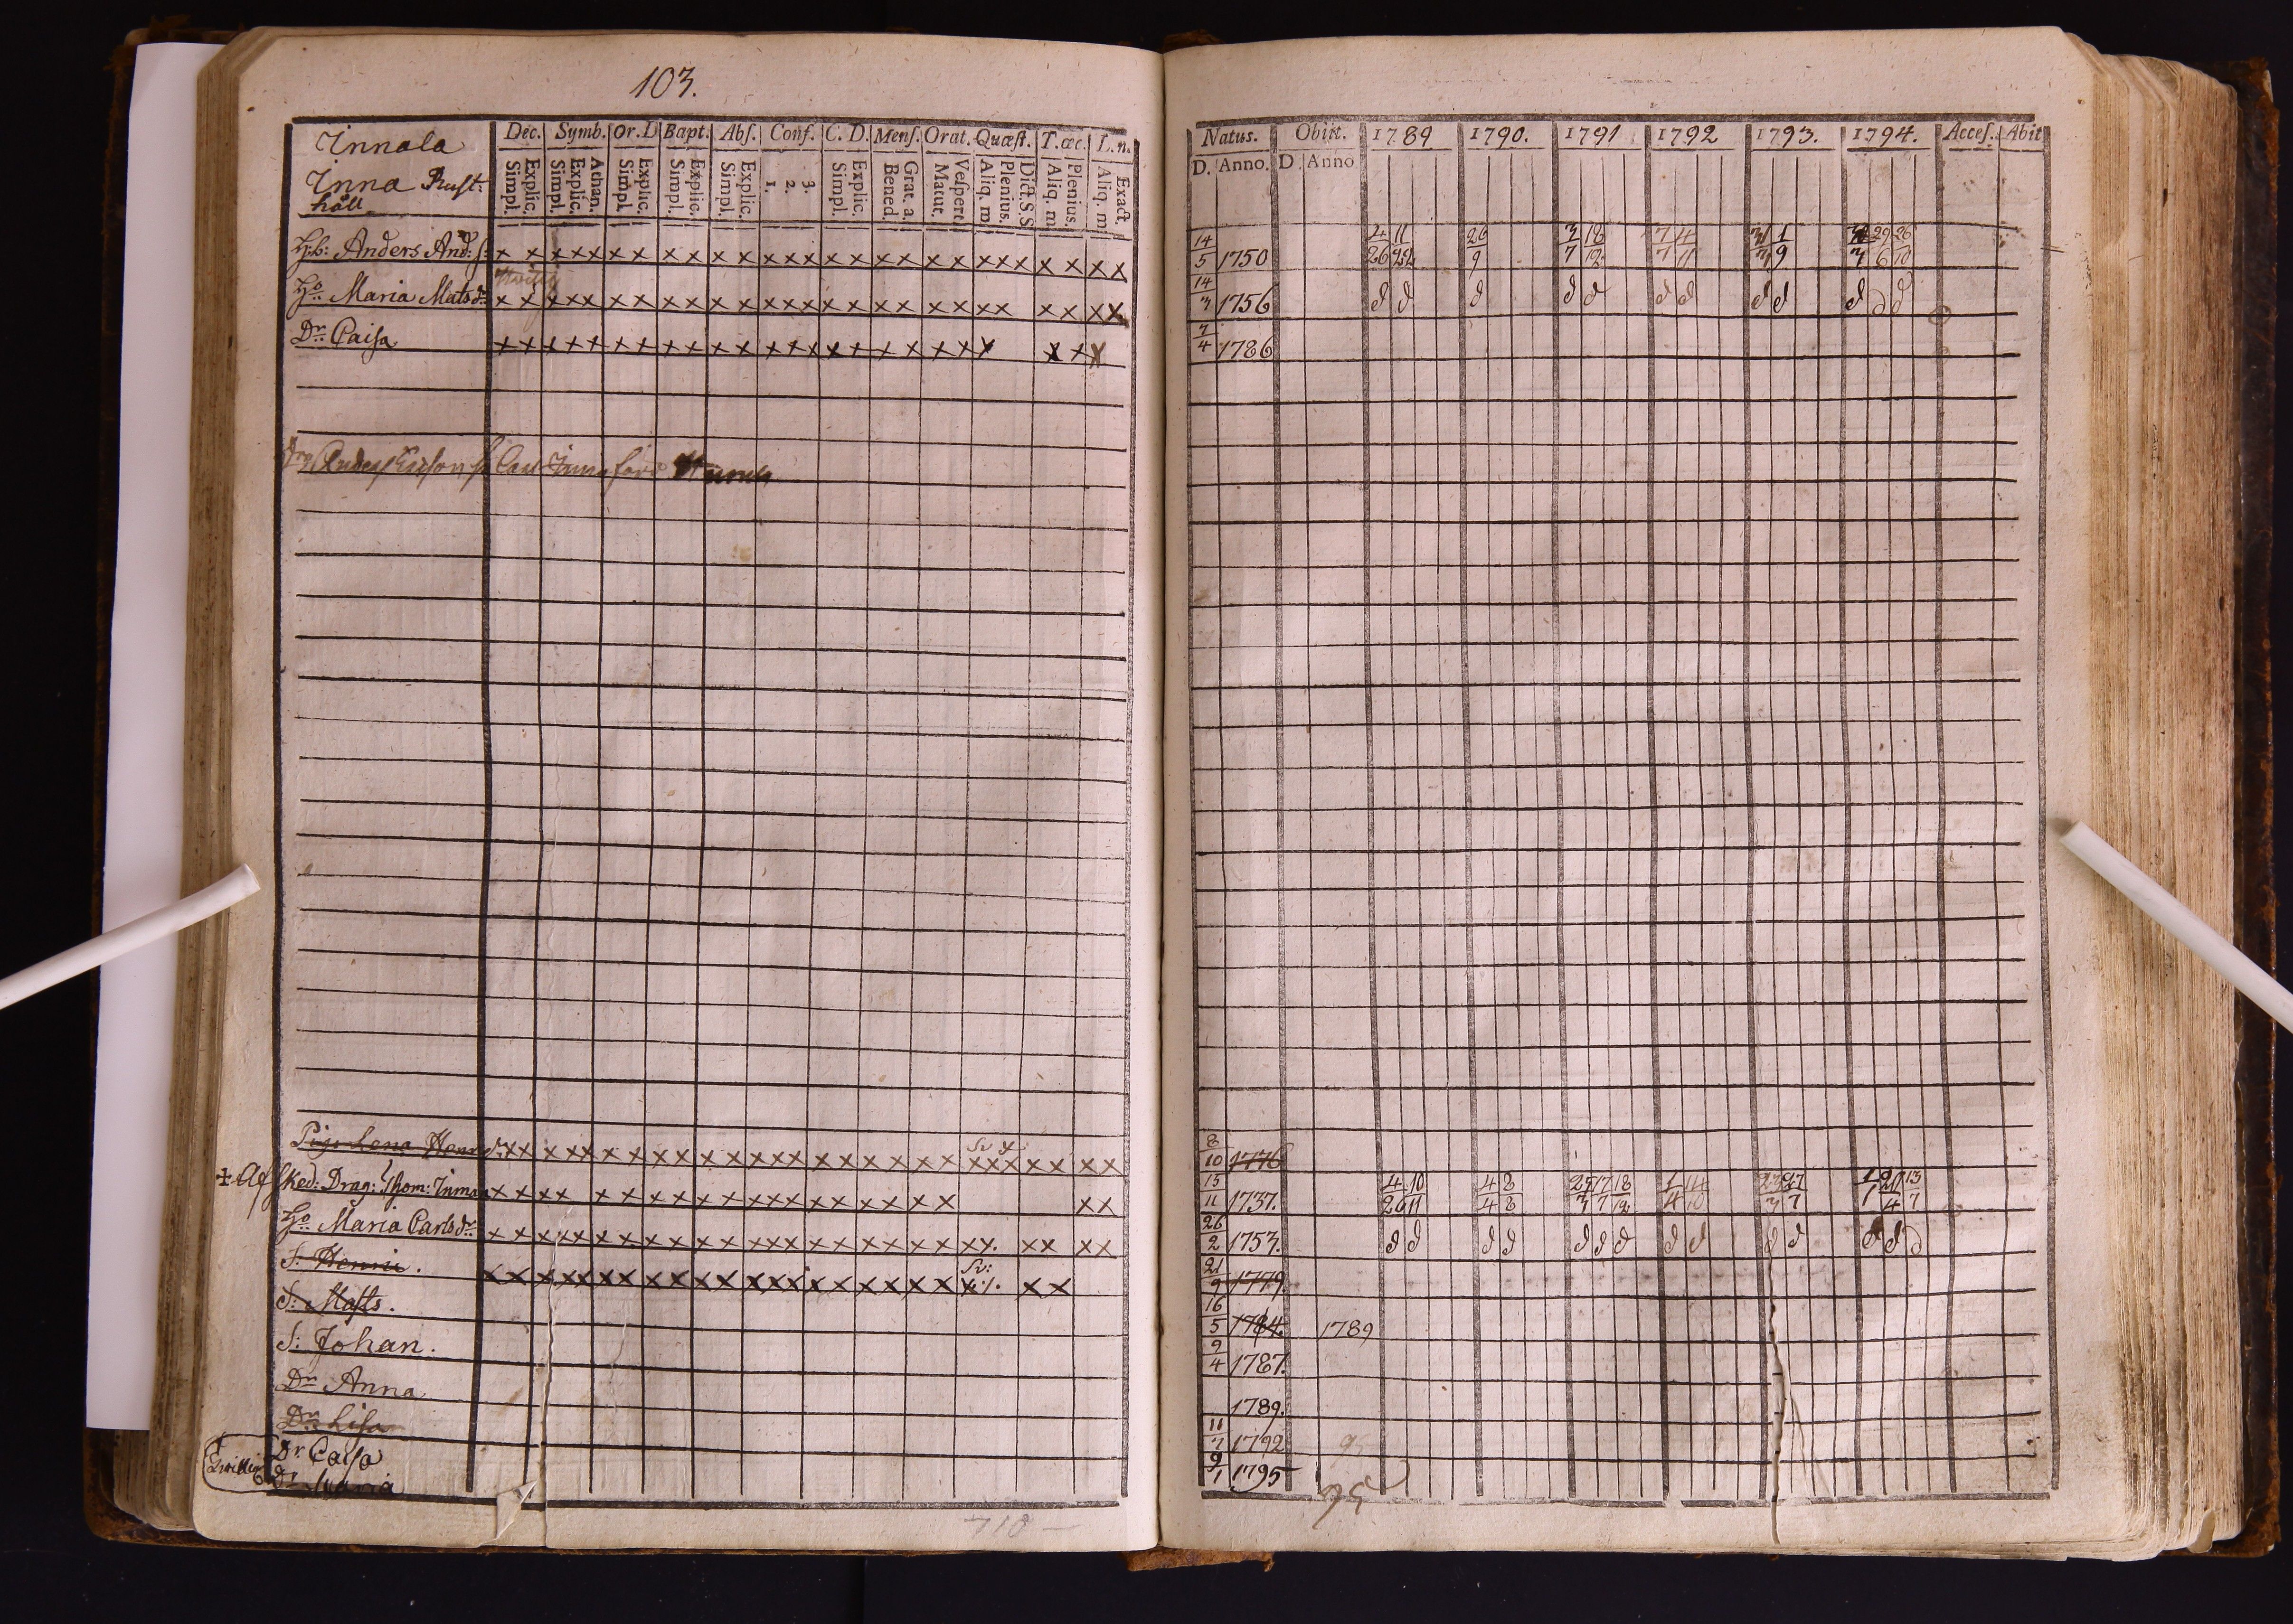 103.
Innala
Inna Rust:
håll
Dec. Symb. Or. D Bapt. Abſ. Conf. C. D. Menſ. Orat. Quæſt. T. œc. L. n.
Explic. Simpl. Athan. Explic. Simpl. Explic. Simpl. Explic. Simpl. Explic. Simpl. 3. 2. 1. Explic. Simpl. Grat. a. Bened. Veſpert. Matut. Dict. S. S Plenius. Aliq. m Plenius. Aliq. m Exact. Aliq. m
Hb: Anders And: S: x x x x x x x x x x x x x x x x x x x x x x x x x x x
Ho: Maria Matsdr x x x x x x x x x x x x x x x x x x x x x x x x x x
Dr Caisa x x x x x x x x x x x x x x x x x x x x x x x x
Pig. Lena Henr. d. x x x x x x x x x x x x x x x x x x x x x x x x x x
+ Af sked: Drag: Thom: Inman x x x x x x x x x x x x x x x x x x x x
Ho Maria Carlsdr x x x x x x x x x x x x x x x x x x x x x x x x x
S: Henric. x x x x x x x x x x x x x x x x x x x x x x
S: Matts.
S: Johan.
Dr Anna
Dr Lisa
Dr Caisa
Dr Maria
710
Natus. Obiit. 1789 1790. 1791 1792 1793. 1794. Acceſ. Abit
D. Anno. D. Anno
14/5 1750 4/26 11/22 26/9 3/7 18/12 7/7 4/11 1/9 29/6 26/10
14/3 1756 d d d d d d d d d d d d
7/4 1786
8/10 1776
15/11 1737. 4/26 10/11 4/4 8/8 25/7 17/7 18/12 1/4 14/10 23/3 27/7 1/1 13/7
26/2 1753. d d d d d d d d d d d d d d
21/9 1779.
16/5 1784. 1789
9/4 1787.
1789.
11/7 1792
9/1 1795
95